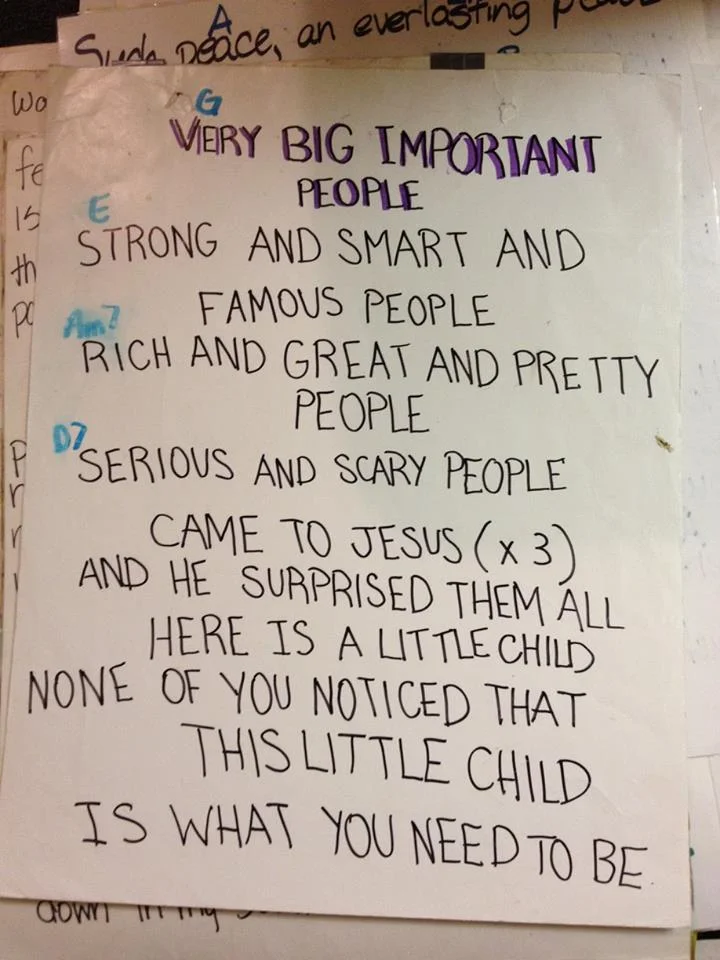 A
Such peace, an everlasting
wo
fe
is
th
po
G
VERY BIG IMPORTANT
PEOPLE
E
STRONG AND SMART AND
FAMOUS PEOPLE
Am7
RICH AND GREAT AND PRETTY
PEOPLE
D7
SERIOUS AND SCARY PEOPLE
CAME TO JESUS (x 3)
AND HE SURPRISED THEM ALL
HERE IS A LITTLE CHILD
NONE OF YOU NOTICED THAT
THIS LITTLE CHILD
IS WHAT YOU NEED TO BE
down in my